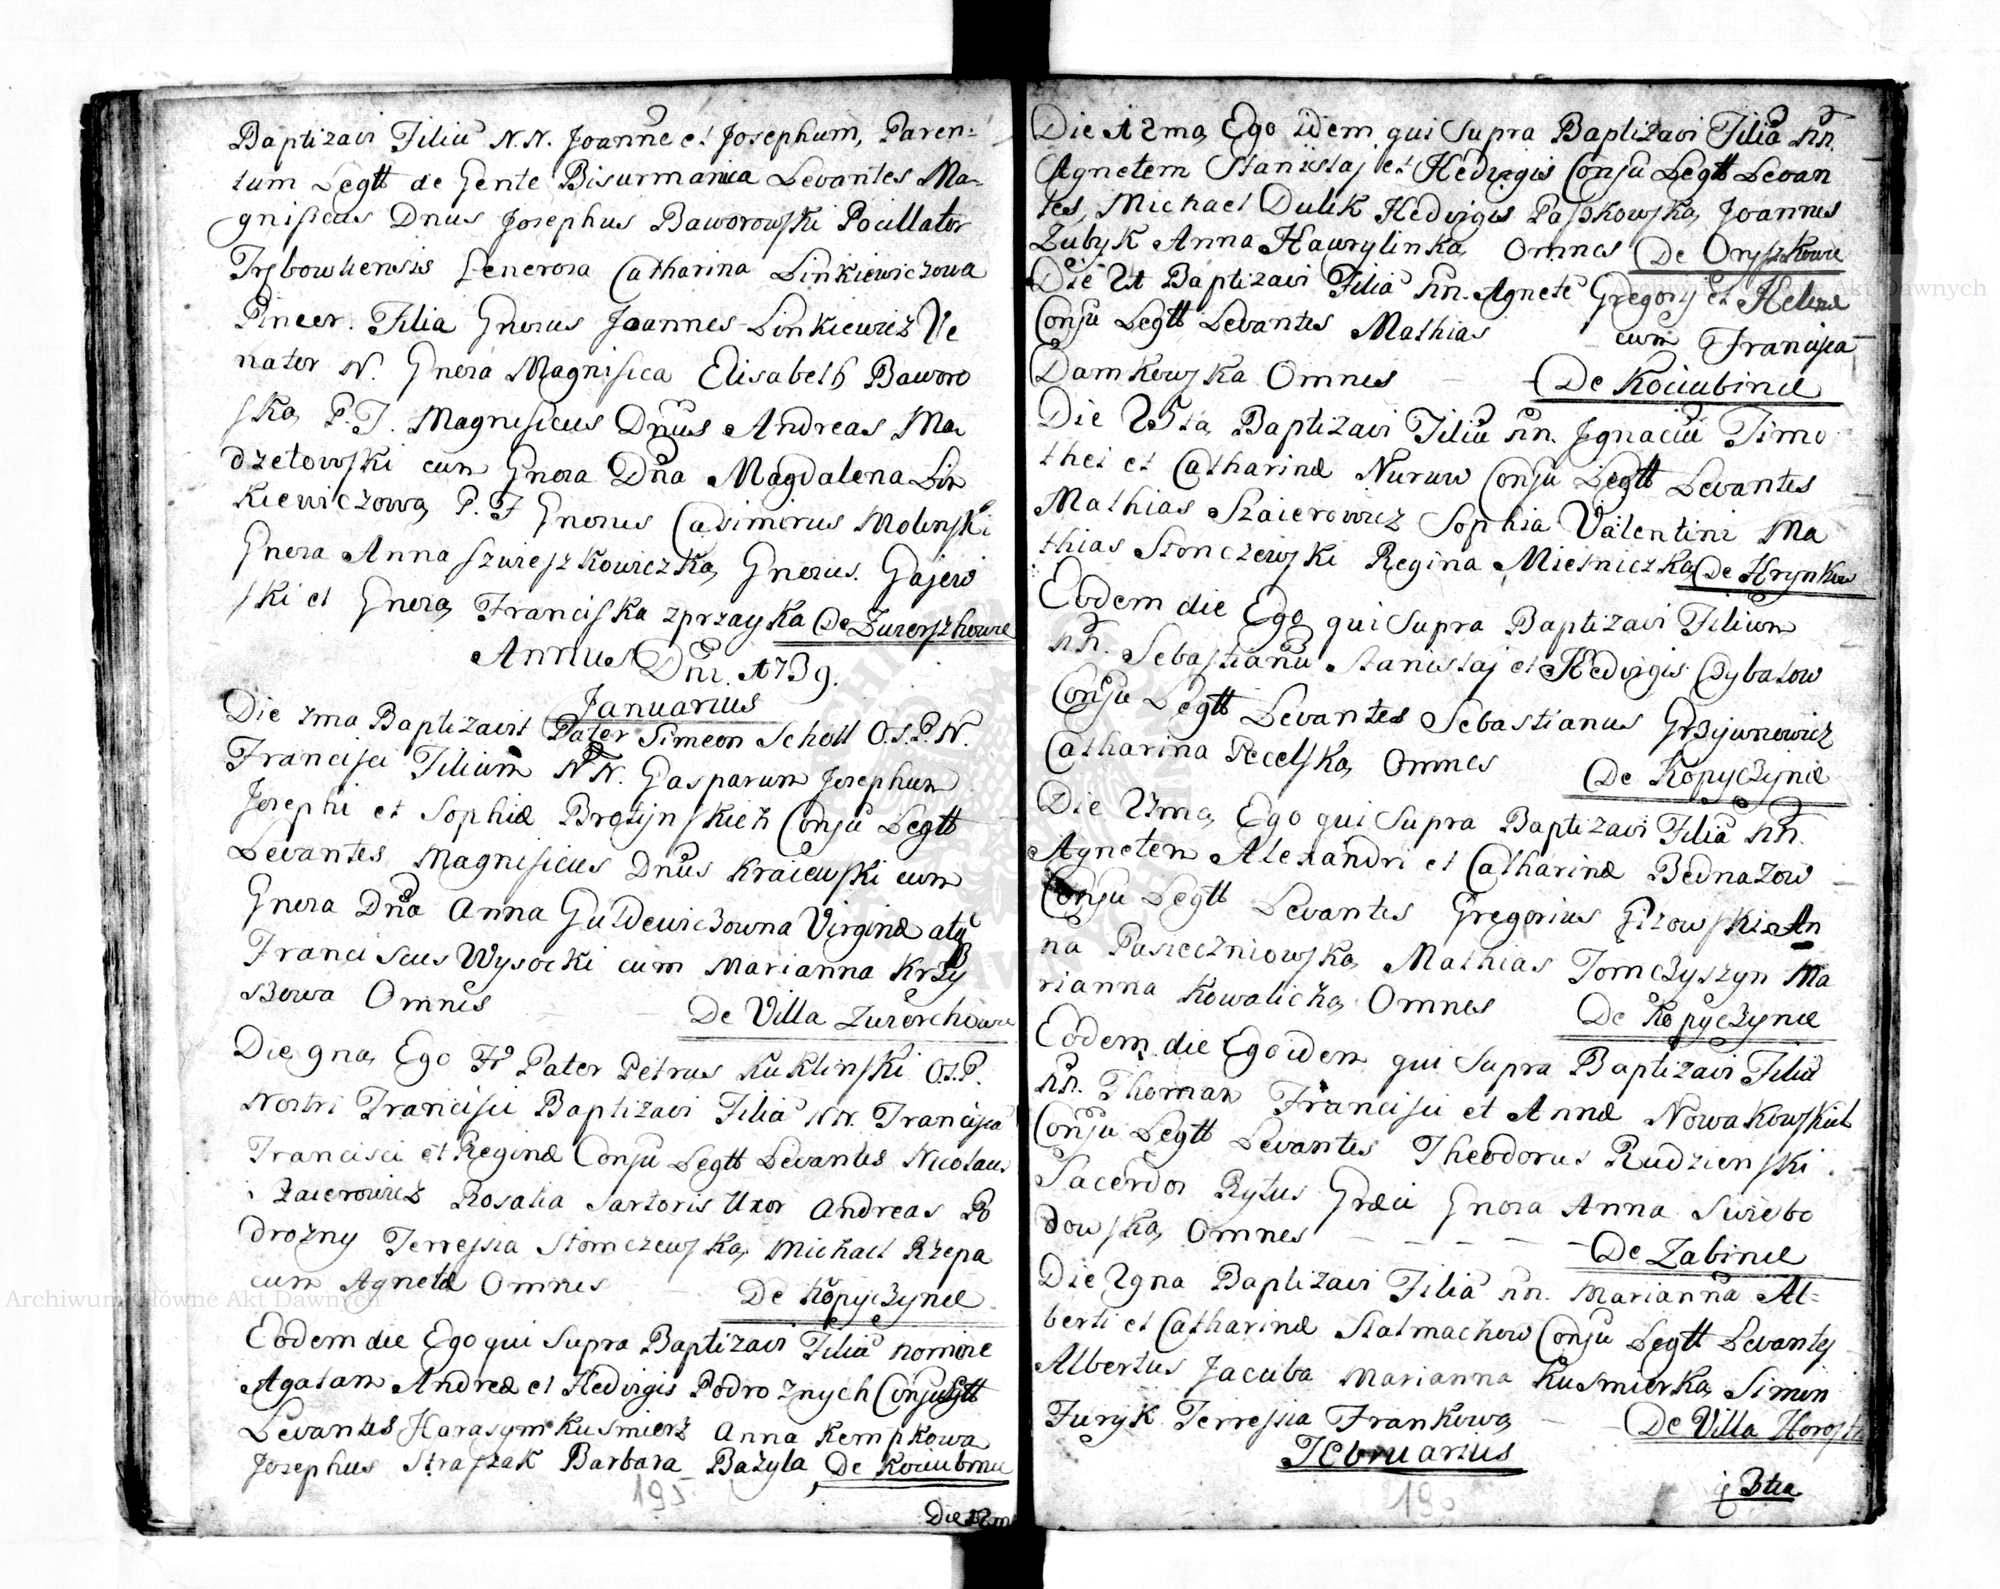 Baptizavi Filiũ N.N. Joannẽ et Josephum, Paren=
tum Legtt de Gente Bisurmanica Levantes Ma=
gnificus Dnus Josephus Baworowski Pocillator
Trębowliensis Generosa Catharina Linkiewiczowa
Pincer. Filia Gnerus Joannes Linkiewicz Ve
nator N. Gnera Magnifica Elisabeth Baworo
ska, P.T. Magnificus Dnũs Andreas Ma
dzelowski cum Gnosa Dña Magdalena Lin
kiewiczowa, P.T Gnerus Casimirus Molinski
Gnera Anna Szwieszkowiczka, Gnerus. Gajew
ski et Gnera, Franciska De Zwierzkowce
Annus Dñi. 1739.
Januarius
Die 7ma Baptizavit Pater Simeon Scholl O.S.P.N.
Francisci Filium N.N. Gasparum Josephum
Josephi et Sophiæ Brozynskich Conju Legtt
Levantes Magnificus Dnũs Kraiewski cum
Gnera Dña Anna Guldewiczowna Virginæ atq
Franciscus Wysocki cum Marianna Krzy
zowa Omnes De Villa Zwierchowce
Die 9na, Ego Fr Pater Petrus Kuklinski O.S.P.
Nostri Francisci Baptizavi Filiã NN. Francisca
Francisci et Reginæ Conju Legtt Levantes Nicolaus
Zaierowicz Rosalia Sartoris Uxor Andreas Po
drozny Terressia Slomczewska, Michael Rzepa
cum Agnetæ Omnes De Kopyczynce
Eodem die Ego qui supra Baptizavi Filiã nomine
Agatam Andreæ et Hedvigis Podroznych Conju Legtt
Levantes Harasym Kusmierz Anna Kempkowa
Josephus Straszak Barbara Bazyla, De Kociubince
195
Die 12m
Die 12ma, Ego idem qui supra Baptizavi Filiã NN.
Agnetem Stanislaj et Hedvigis Conju Legtt Levan
tes, Michael Dulik Hedvigis Paszkowska, Joannes
Zubyk Anna Hawrylinka, Omnes De Oryszkowce
Die 21 Baptizavi Filiã NN. Agnetẽ Gregorij et Helenæ
Conju Legtt Levantes Mathias cum Francisca
Damkowska Omnes De Kociubince
Die 25ta, Baptizavi Filiũ NN. Ignaciũ Timo
thei et Catharinæ Nurow Conju Legtt Levantes
Mathias Szaierowicz Sophia Valentini Ma
thias Slonczewski Regina Mielniczka, De Hrynkow
Eodem die Ego qui supra Baptizavi Filium
NN. Sebastianũ Stanislaj et Hedvigis Cybalow
Conju Legtt Levantes Sebastianus Grzywnowicz
Catharina Pecelska, Omnes De Kopyczynce
Die 27ma, Ego qui supra Baptizavi Filiã NN.
Agnetem Alexandri et Catharinæ Bednazow
Conju Legtt Levantes Gregorius Gizowski An
na Pasiecznikowska, Mathias Tomczyszyn Ma
rianna Kowaliczka, Omnes De Kopyczynce
Eodem die Ego idem qui supra Baptizavi Filiũ
NN. Thomam Francisci et Annæ Nowakowskich
Conju Legtt Levantes Theodorus Rudzienski
Sacerdos Rytus Græci Gnora Anna Swiebo
dowska, Omnes De Zabince
Die 29na Baptizavi Filiã NN. Mariannã Al=
berti et Catharinæ Stalmachow Conju Legtt Levantes
Albertus Jacuba Marianna Kusmierka, Simon
Furyk Terressia Frankowa, De Villa Horost
Februarius
190
3tia
Archiwum Główne Akt Dawnych
Archiwum Główne Akt Dawnych